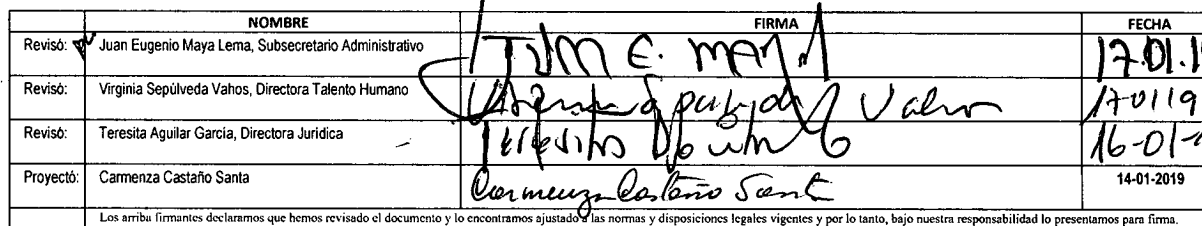 NOMBRE FIRMA FECHA
Revisó: Juan Eugenio Maya Lema, Subsecretario Administrativo JUAN E. MAYA 17.01.1
Revisó: Virginia Sepúlveda Vahos, Directora Talento Humano Vahos 170119
Revisó: Teresita Aguilar García, Directora Jurídica Teresita 16-01-
Proyectó: Carmenza Castaño Santa Carmenza Castaño Santa 14-01-2019
Los arriba firmantes declaramos que hemos revisado el documento y lo encontramos ajustado a las normas y disposiciones legales vigentes y por lo tanto, bajo nuestra responsabilidad lo presentamos para firma.